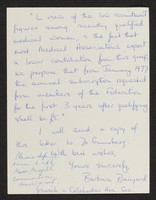 "In view of the low recruitment
figures among recently qualified
medical women, & the fact that
most Medical Associations expect
a lower contribution from this group,
we propose that from January 1977
the annual subscription required
from members of the Federation
for the first 3 years after qualifying
shall be
I will send a copy of
this letter to Dr
With best wishes,
Yours sincerely,
Barbara